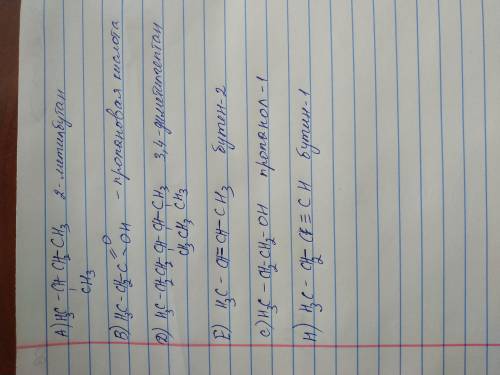 А) H₃C - CH CH₂-CH₃ 2-метилбутан
CH₃
B) H₃C-CH₂-C - пропановая кислота
O
OH
Д) H₃C-CH₂CH₂ CH CH CH₃ 3,4-диметилгептан
CH₃ CH₃ CH₃
E) H₃C - CH = CH - CH₃ бутен-2
C) H₃C - CH₂-CH₂-OH пропанол-1
H) H₃C - CH₂ - C ≡ CH бутин-1